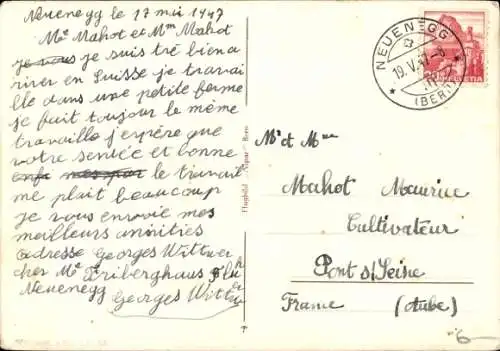 Neuenegg le 17 mai 1947
Mr Mahot et Mm Mahot
je vous je suis tré bien a
river en Suisse je travai
lle dans une petite ferme
je fait toujour le même
travaille j'espère que
votre sentée et bonne
le travail
me plait beaucoup
je vous envoie mes
meilleurs amitiés
adresse Georges Wittwer
cher Mr Friberghaus Fluh
Neuenegg
Georges Wittwer
Flugbild Bern
NEUENEGG
19.V.47
(BERN)
HELVETIA
Mr et Mme
Mahot Maurice
Cultivateur
Pont s/Seine
France (Aube)
6